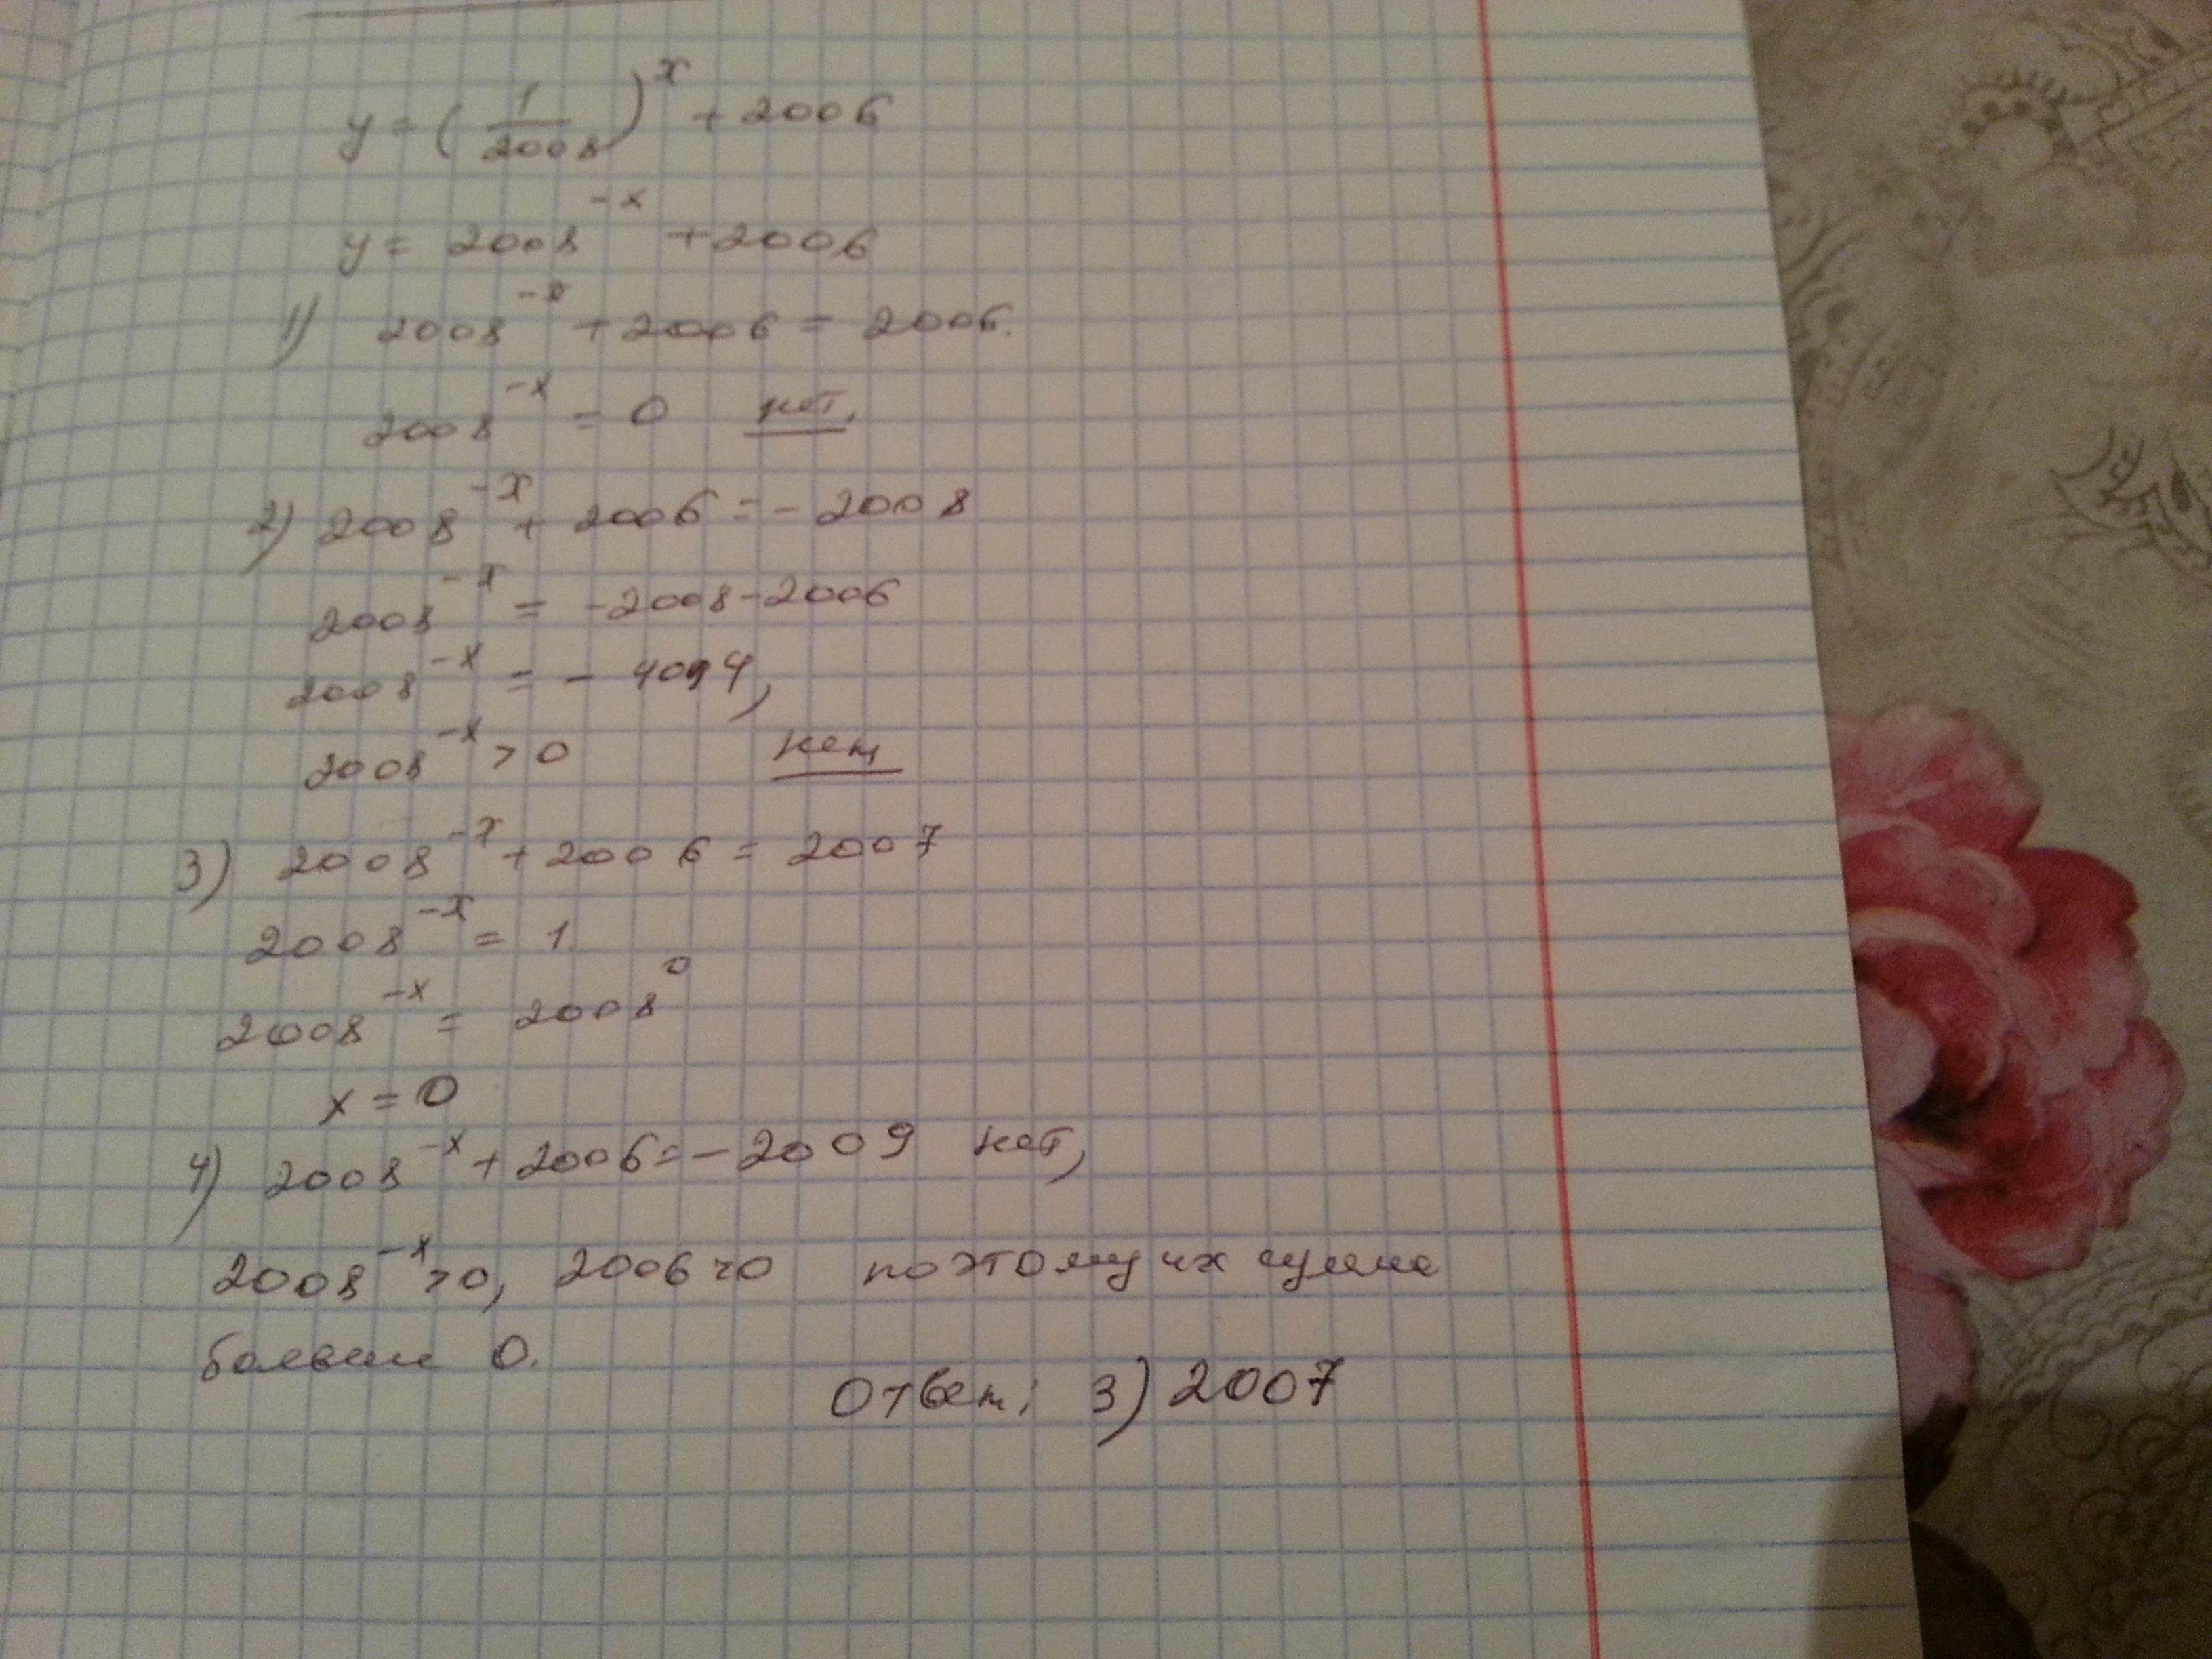 y = (1/2008)^x + 2006
y = 2008^-x + 2006
1) 2008^-x + 2006 = 2006.
2008^-x = 0 нет,
2) 2008^-x + 2006 = - 2008
2008^-x = -2008-2006
2008^-x = - 4014,
2008^-x > 0 нет
3) 2008^-x + 2006 = 2007
2008^-x = 1
2008^-x = 2008^0
x = 0
4) 2008^-x + 2006 = - 2009 нет,
2008^-x > 0, 2006 > 0 поэтому их сумма
больше 0.
Ответ: 3) 2007